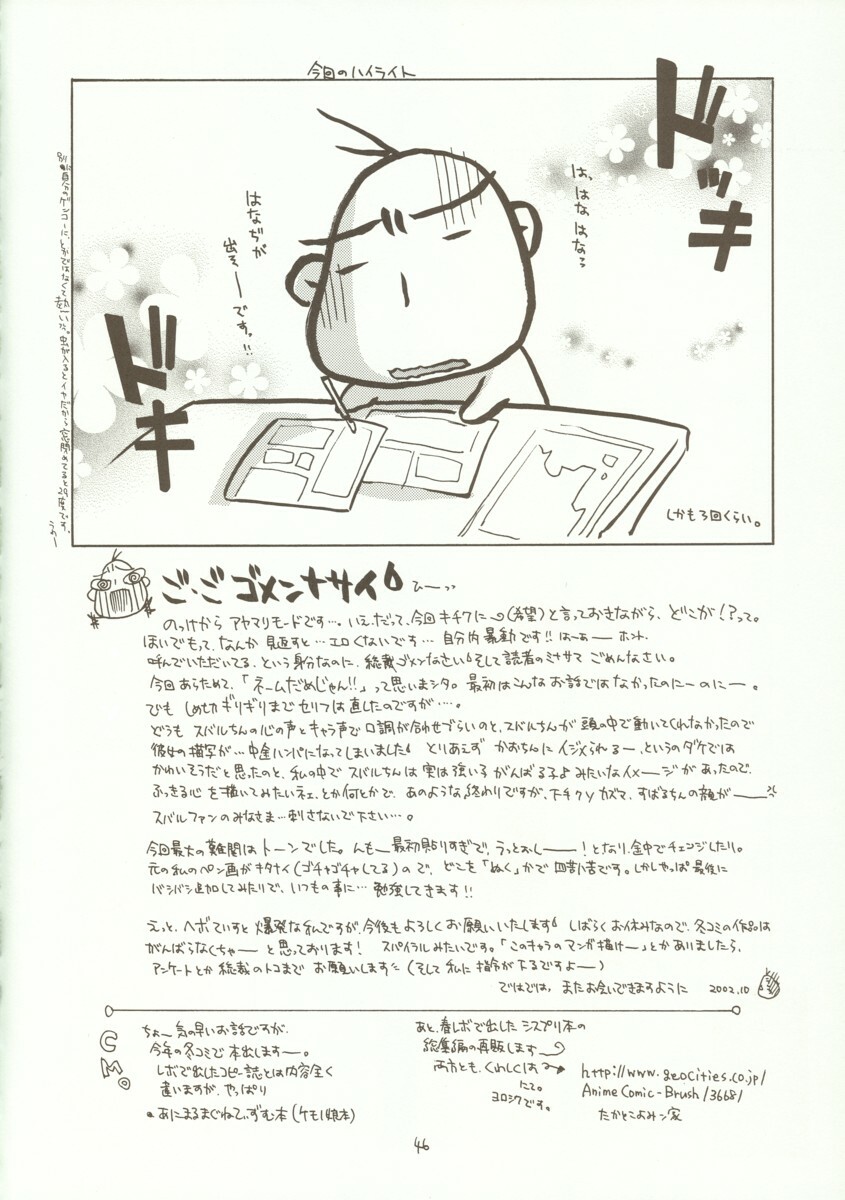 今回のハイライト
ドッキ
は、はなはなっ
はなぢが
出そーですッ!!
ドキ
しかも3回くらい。
別に自分のゲンコーに、とかではなくて熱いだ。虫が入るとイヤだから窓閉めてると29度です。うわー
ご・ごゴメンナサイ
ひーっっ
のっけから アヤマリモードです…。いえ、だって、今回キチクに(希望)と言っておきながら、どこが!?って。
ほいでもって、なんか 見返すと…エロくないです… 自分内暴動です!! はーぁー ホント、
呼んでいただいてる、という身分なのに、総裁ゴメンなさい そして読者のミナサマ ごめんなさい。
今回あらためて、「ネームだめじゃん!!」って思いまシタ。最初はこんなお話ではなかったのにーのにー。
でも しめ切ギリギリまでセリフは直したのですが…。
どうも スバルちんの心の声とキャラ声で口調が合わせづらいのと、スバルちんが頭の中で動いてくれなかったので
彼女の描写が…中途ハンパになってしまいました とりあえず かおちんに イジメられるー、というのダケでは
かわいそうだと思ったのと、私の中で スバルちんは実は強い子 がんばる子♪みたいなイメージがあったので、
ふっきる心を描いてみたいネェ、とか何とかで、あのような終わりですが、下チクyカズマ、すばるちんの顔がーー
スバルファンのみなさま…刺さないで下さい…。
今回最大の難関はトーンでした。んもー最初貼りすぎで、うっとおしーー!となり、途中でチェンジしたり。
元の私のペン画がキタナイ(ゴチャゴチャしてる)ので、どこを「ぬく」かで四苦八苦です。しかしやっぱ最後に
バシバシ追加してみたりで、いつもの事に…勉強してきます!!
えっと、ヘボていすと爆発な私ですが、今後もよろしくお願いいたします しばらくお休みなので、冬コミの作品は
がんばらなくちゃーと思っております! スパイラルみたいです。「このキャラのマンガ描けー」とかありましたら、
アンケートとか総裁のトコまで お願いします (そして私に指令が下るですよー)
ではでは、またお会いできますように 2002.10
CM。
ちょー気の早いお話ですが、
今年の冬コミで本出しますー。
レボで出したコピー誌とは内容全く
違いますが、やっぱり
●あにまるまぐねてぃずむ本(ケモノ娘本)
あと、春レボで出した シスプリ本の
総集編の再販します
両方とも、くわしくは→
http://www.geocities.co.jp/
AnimeComic-Brush/3668/
にて。
ヨロシクです。
たかとこよみン家
46